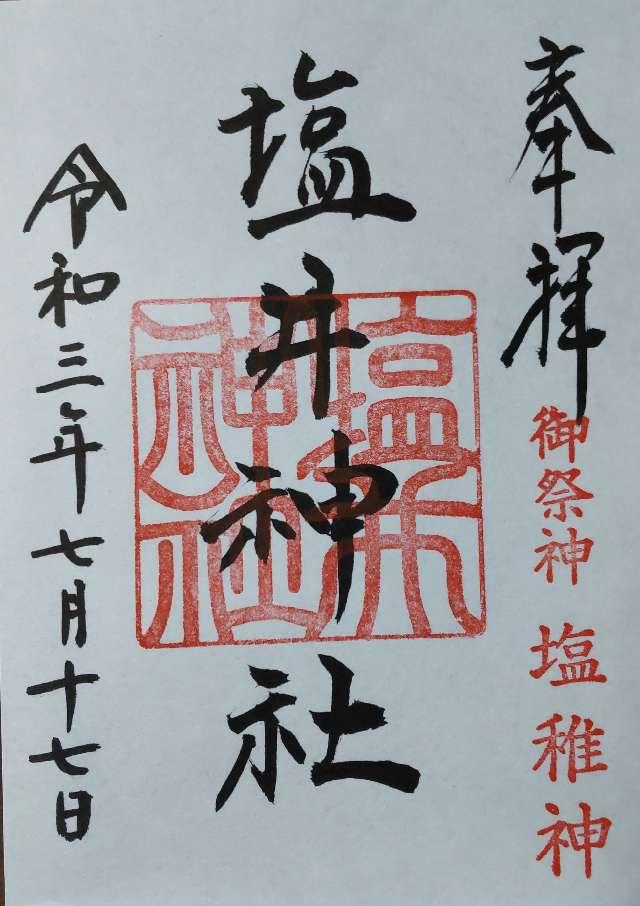 奉拝
御祭神 塩稚神
塩井神社
塩井神社
令和三年七月十七日